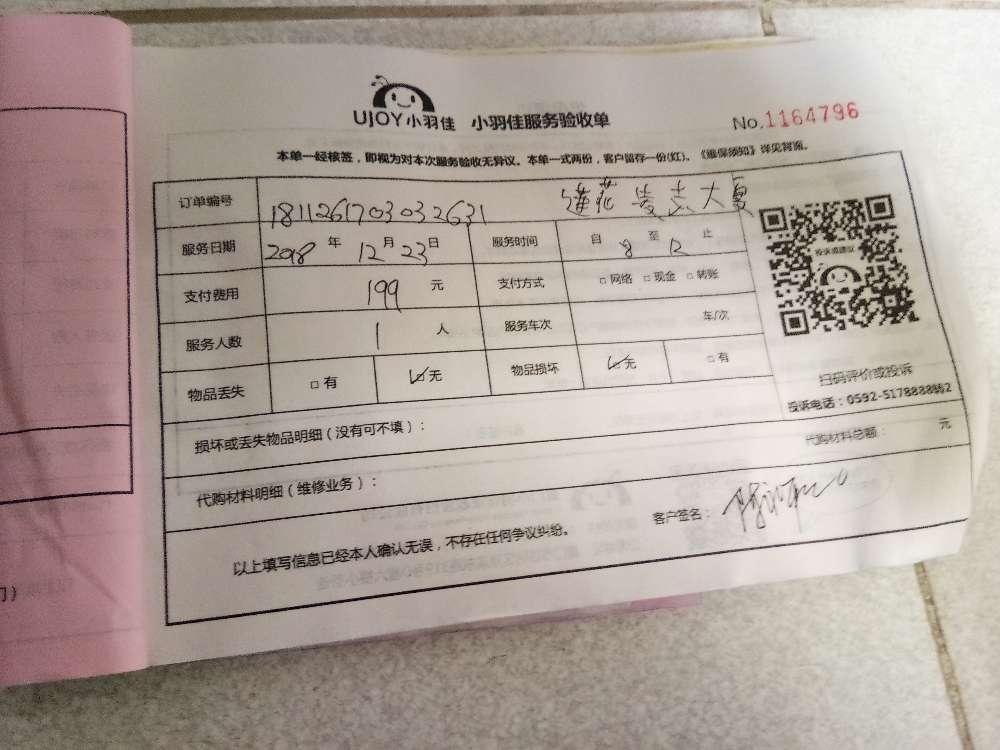 UJOY小羽佳 小羽佳服务验收单 No.1164796
本单一经核签，即视为对本次服务验收无异议。本单一式两份，客户留存一份(红)。《维保须知》详见背面。
订单编号 1811261703032631 莲花 大厦
服务日期 2018 年 12 月 23 日 服务时间 自 8 至 12 止
投诉或建议
支付费用 199 元 支付方式 □网络 □现金 □转账
服务人数 1 人 服务车次 车/次
物品丢失 □有 ☑无 物品损坏 ☑无 □有
扫码评价或投诉
投诉电话：0592-5178888转2
损坏或丢失物品明细（没有可不填）：
代购材料明细（维修业务）： 代购材料总额： 元
以上填写信息已经本人确认无误，不存在任何争议纠纷。 客户签名：